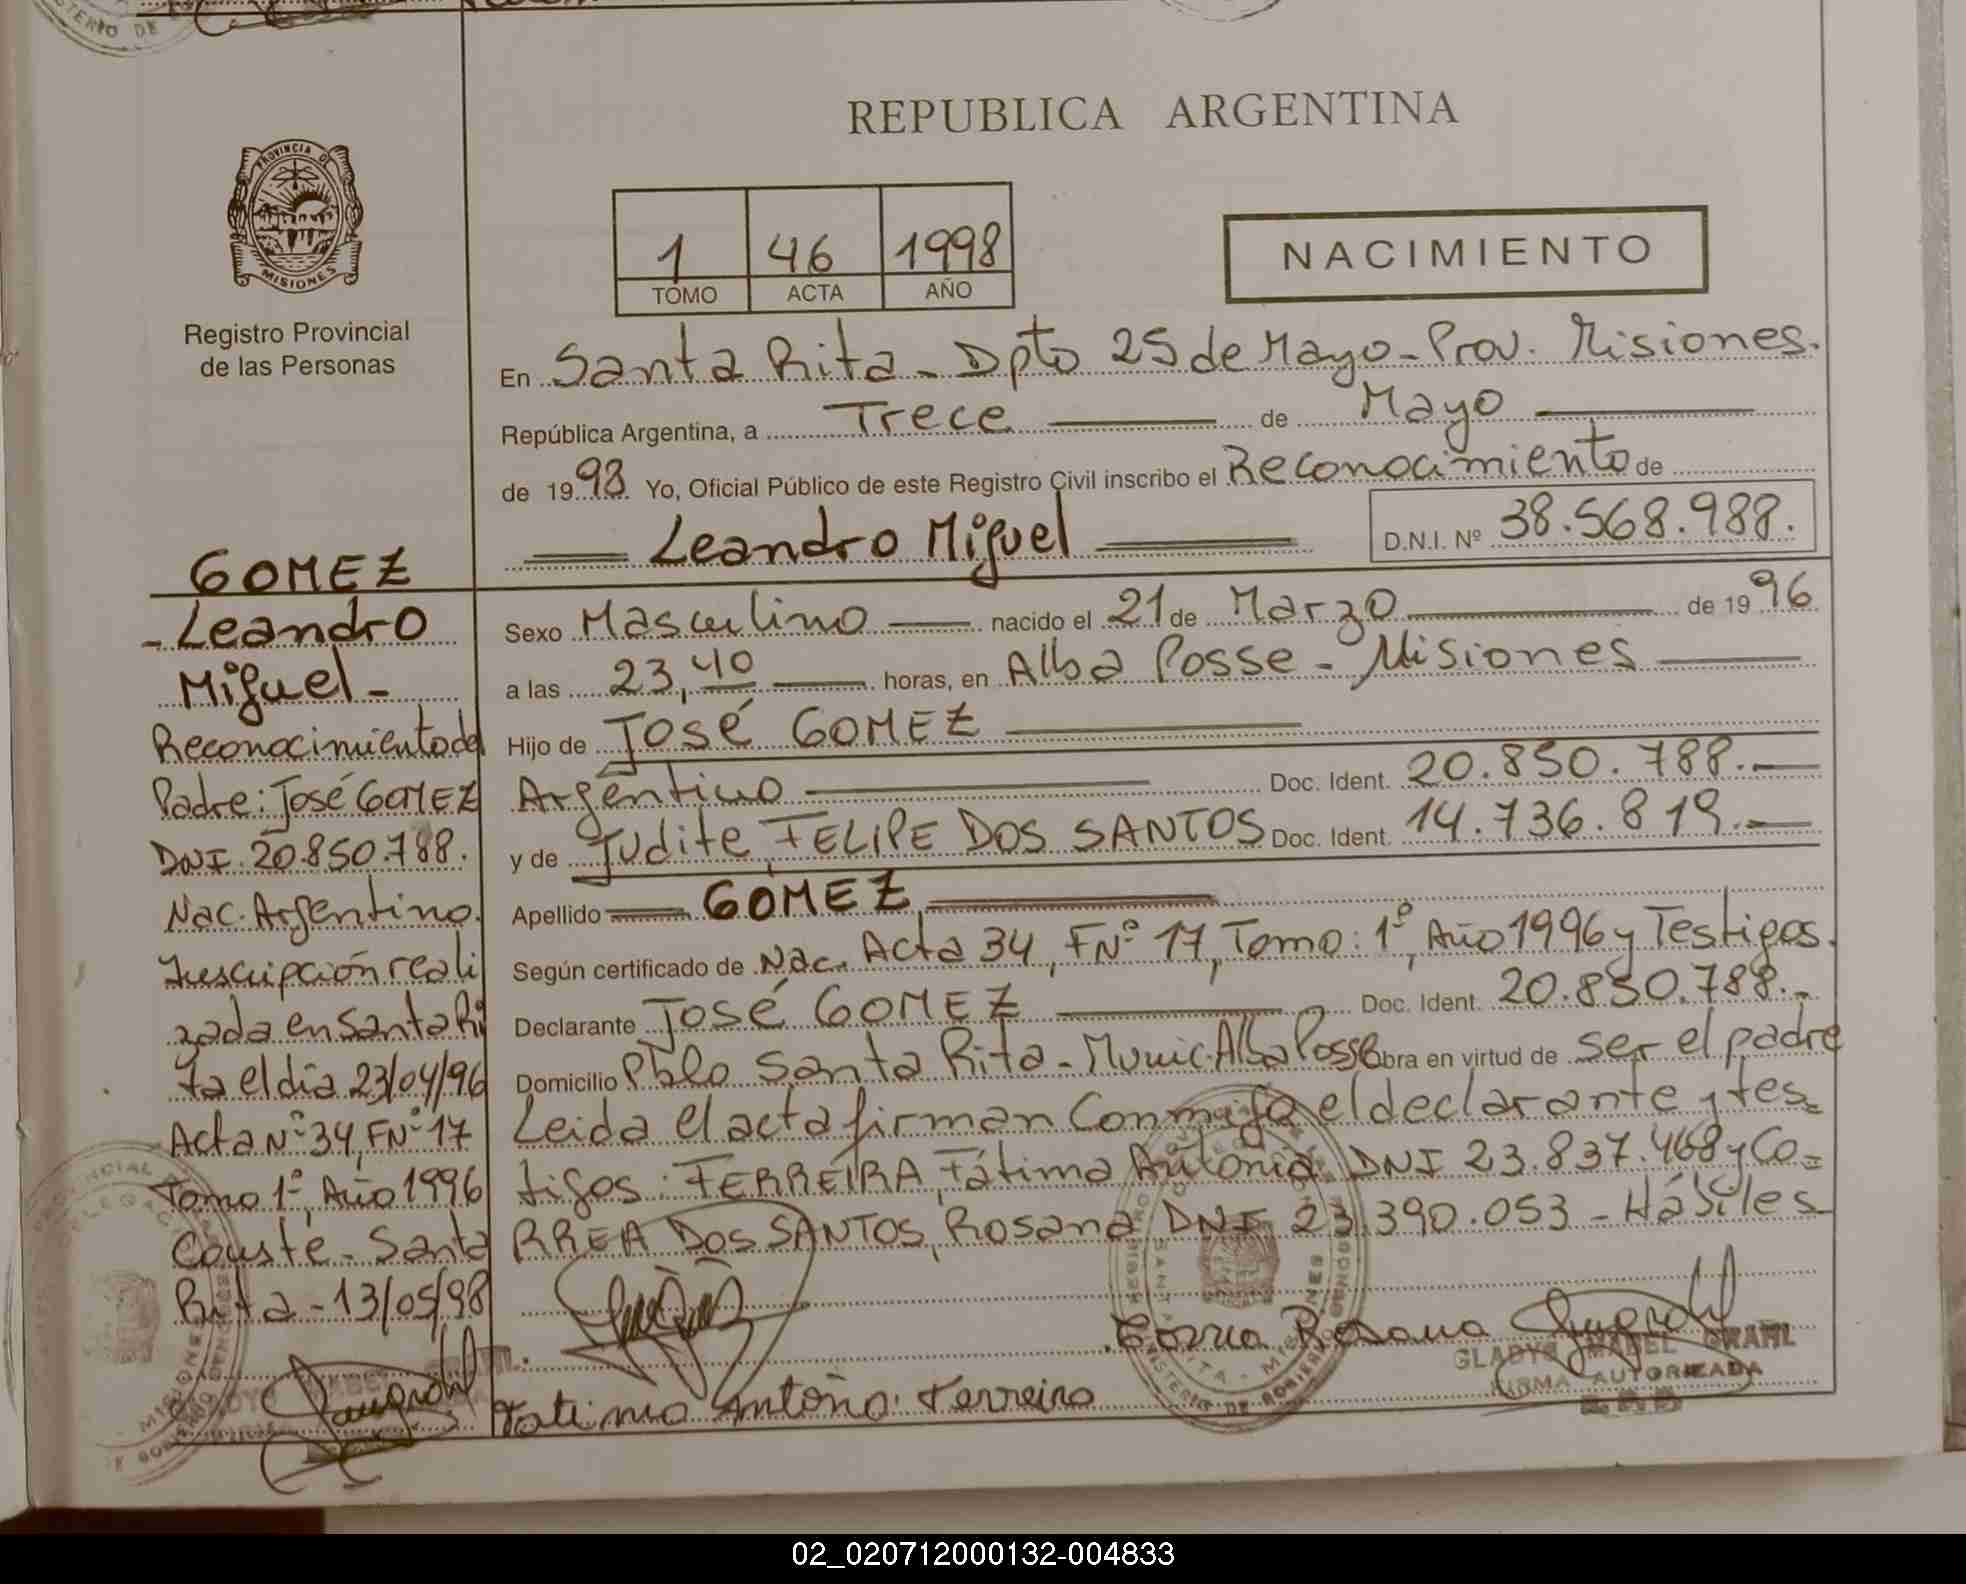 REPUBLICA ARGENTINA
PROVINCIA DE
MISIONES
Registro Provincial
de las Personas
1 46 1998
TOMO ACTA AÑO
NACIMIENTO
En Santa Rita - Dpto 25 de Mayo - Prov. Misiones.
República Argentina, a Trece de Mayo
de 1998 Yo, Oficial Público de este Registro Civil inscribo el Reconocimiento de
Leandro Miguel D.N.I. Nº 38.568.988.
Sexo Masculino nacido el 21 de Marzo de 1996
a las 23,40 horas, en Alba Posse - Misiones
Hijo de José GOMEZ
Argentino Doc. Ident. 20.850.788.
y de Judite, FELIPE DOS SANTOS Doc. Ident. 14.736.819.
Apellido GOMEZ,
Según certificado de Nac. Acta 34, FNº 17, Tomo: 1º, Año 1996 y Testigos.
Declarante José GOMEZ Doc. Ident. 20.850.788.-
Domicilio Pblo Santa Rita - Munic. Alba Posse obra en virtud de ser el padre
Leida el acta firman conmigo el declarante y tes=
tigos: FERREIRA, Fátima Antonia DNI 23.837.468 y Co=
RREA DOS SANTOS, Rosana DNI 23.390.053 - Hábiles
Correa Rosana
GLADYS MABEL GRAHL
FIRMA AUTORIZADA
Fatima Antonia Ferreira
GOMEZ
- Leandro
Miguel -
Reconocimiento del
Padre: José GOMEZ
DNI. 20.850.788.
Nac. Argentino.
Inscripción reali
zada en Santa Ri
ta el día 23/04/96
Acta Nº 34, FNº 17
Tomo 1º, Año 1996
Conste - Santa
Rita - 13/05/98
02_020712000132-004833